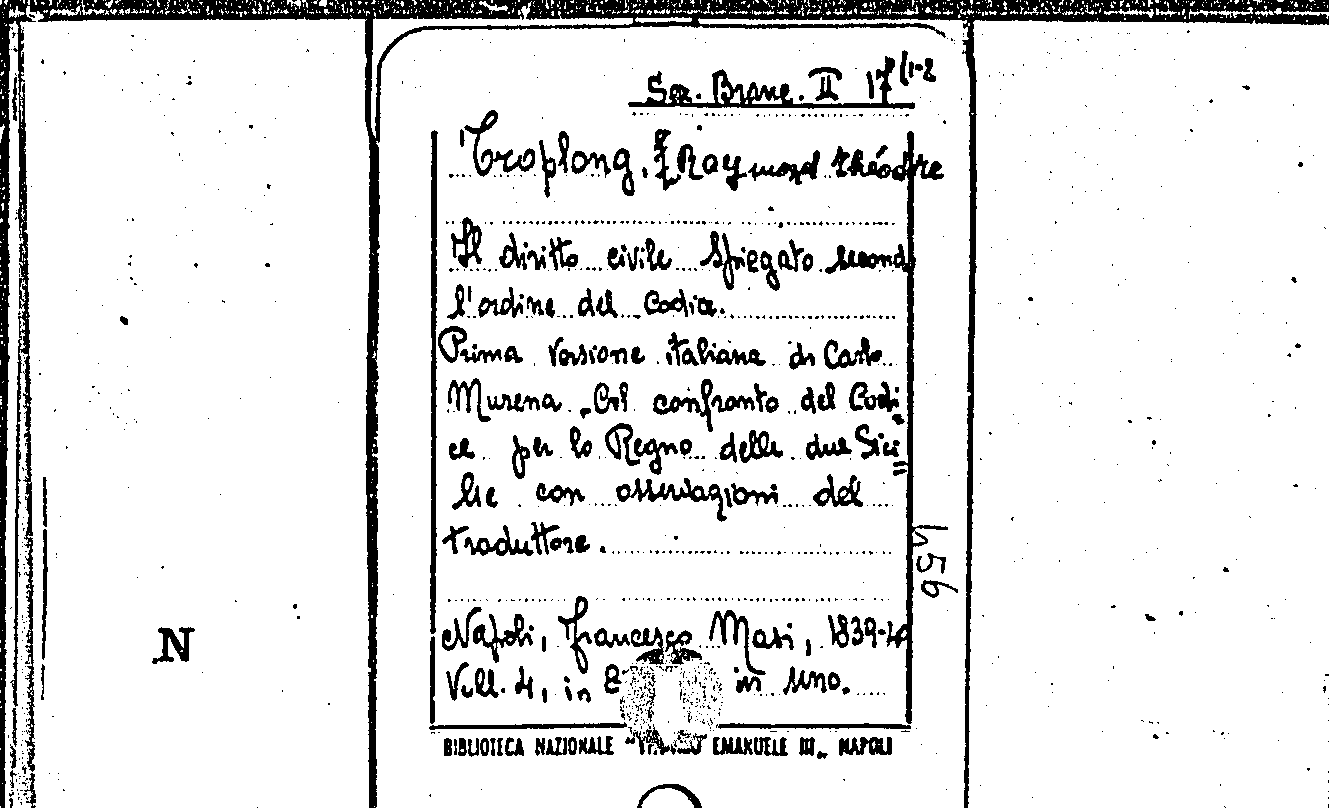 Sez. Branc. II 17 (1-2
Troplong, Raymond théodore
Il diritto civile spiegato second
l'ordine del Codice.
Prima versione italiana di Carlo
Murena. Col confronto del Codi
ce per lo Regno delle due Sici
lie con osservazioni del
traduttore.
456
Napoli, Francesco Masi, 1839-40
N
Voll. 4, in 8 in uno.
BIBLIOTECA NAZIONALE "VITTORIO EMANUELE III„ NAPOLI